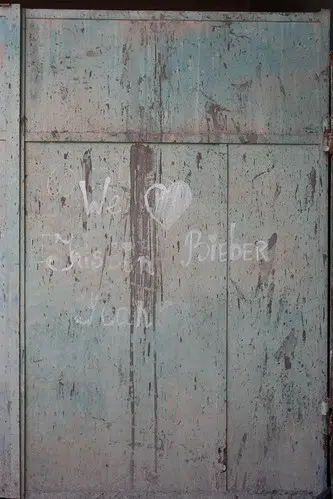 We ♥
Justin Bieber
Yeah